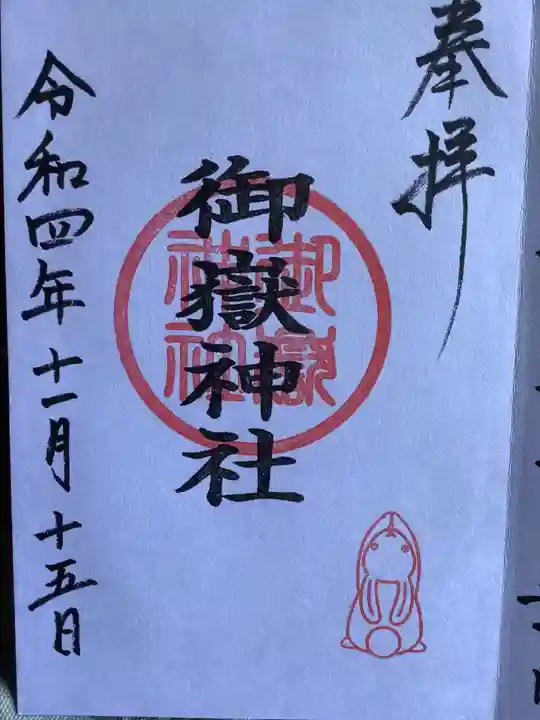 奉拝
御嶽神社
御嶽神社
令和四年十一月十五日